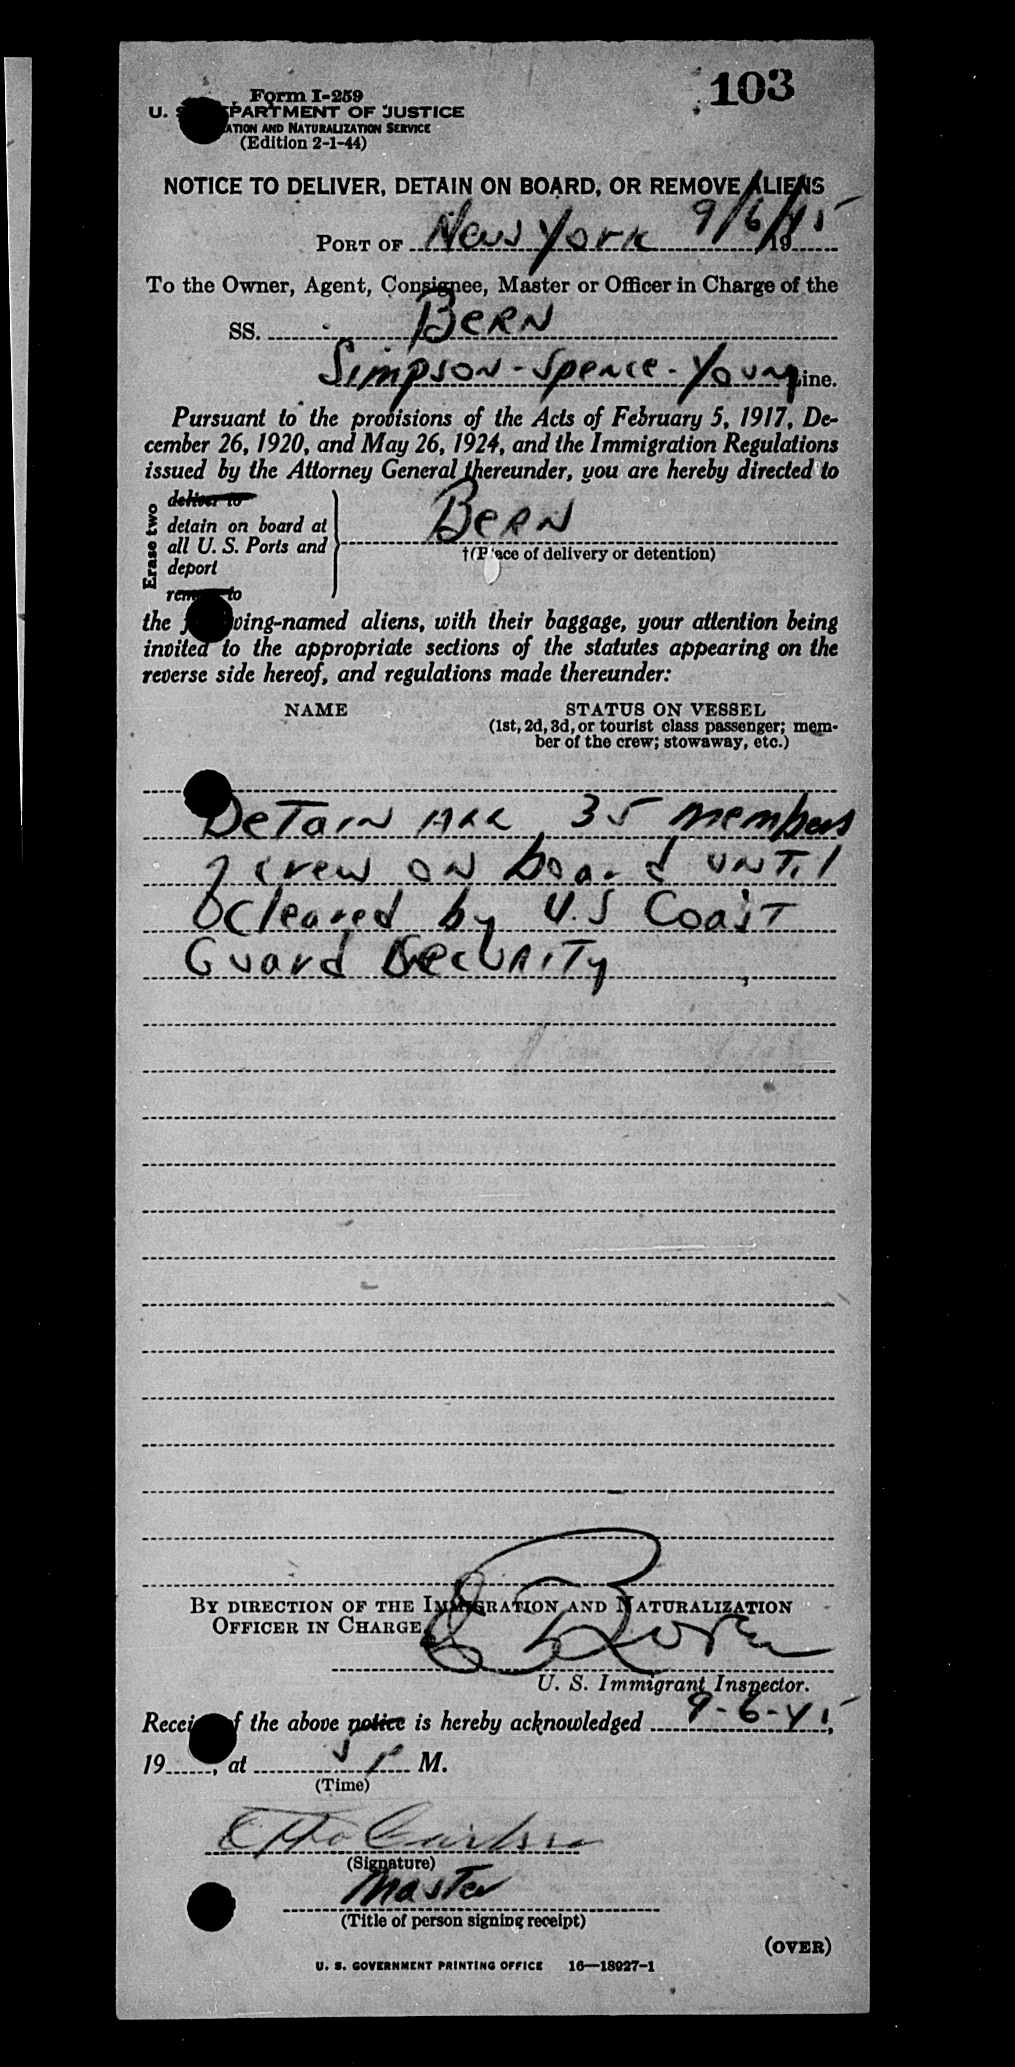 103
Form I-259
U. S. DEPARTMENT OF JUSTICE
ATION AND NATURALIZATION SERVICE
(Edition 2-1-44)
NOTICE TO DELIVER, DETAIN ON BOARD, OR REMOVE ALIENS
PORT OF New York 9/6/45 19
To the Owner, Agent, Consignee, Master or Officer in Charge of the
SS. BERN
Simpson-Spence-Young Line.
Pursuant to the provisions of the Acts of February 5, 1917, De-
cember 26, 1920, and May 26, 1924, and the Immigration Regulations
issued by the Attorney General thereunder, you are hereby directed to
Erase two
deliver to
detain on board at
all U. S. Ports and
deport
remove to
BERN
†(Place of delivery or detention)
the following-named aliens, with their baggage, your attention being
invited to the appropriate sections of the statutes appearing on the
reverse side hereof, and regulations made thereunder:
NAME STATUS ON VESSEL
(1st, 2d, 3d, or tourist class passenger; mem-
ber of the crew; stowaway, etc.)
Detain ALL 35 members
of crew on board until
cleared by U.S Coast
Guard Security
BY DIRECTION OF THE IMMIGRATION AND NATURALIZATION
OFFICER IN CHARGE
U. S. Immigrant Inspector.
Receipt of the above notice is hereby acknowledged 9-6-45,
19......, at 5 P M.
(Time)
Otto
(Signature)
Master
(Title of person signing receipt)
(OVER)
U. S. GOVERNMENT PRINTING OFFICE 16—18927-1